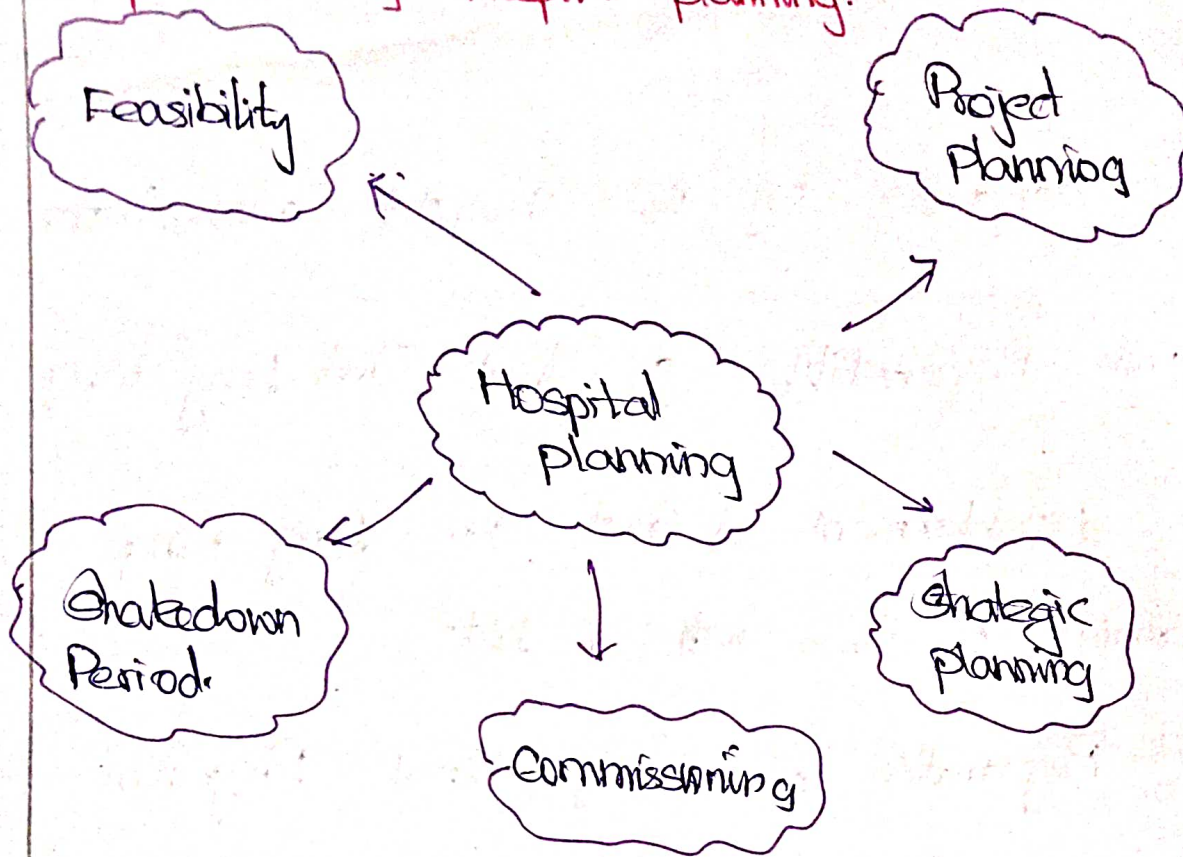 planning.
Feasibility
Project
planning
Hospital
planning
Shakedown
Period.
Strategic
planning
Commissioning